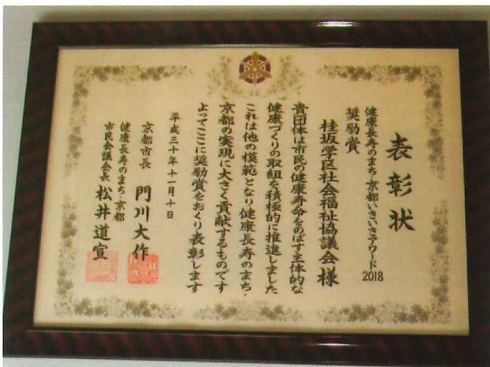 表彰状
健康長寿のまち・京都いきいきアワード2018
奨励賞
桂坂学区社会福祉協議会様
貴団体は市民の健康寿命をのばす主体的な
健康づくりの取組を積極的に推進しました
これは他の模範となり健康長寿のまち・
京都の実現に大きく貢献するものです
よってここに奨励賞をおくり表彰します
平成三十年十一月十日
京都市長 門川大作
健康長寿のまち・京都
市民会議会長 松井道宣